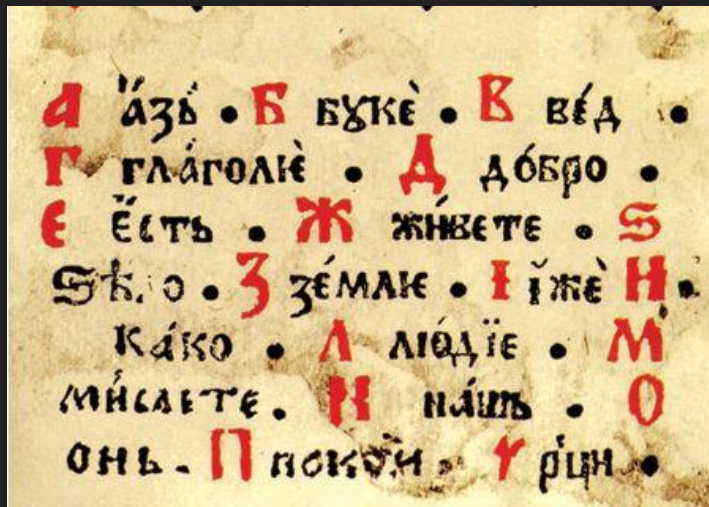 А а҆́зь • Б бꙋкѐ • В ве́д •
Г гла́голѥ̀ • Д до́бро •
Е є҆́сть • Ж жи́вете • Ѕ
ѕѣ. о • З зе́млѥ • І і҆жѐ И •
ка́ко • Л лю́дїе • М
ми́слете • Н на́шь • О
онь • П покои • рци •